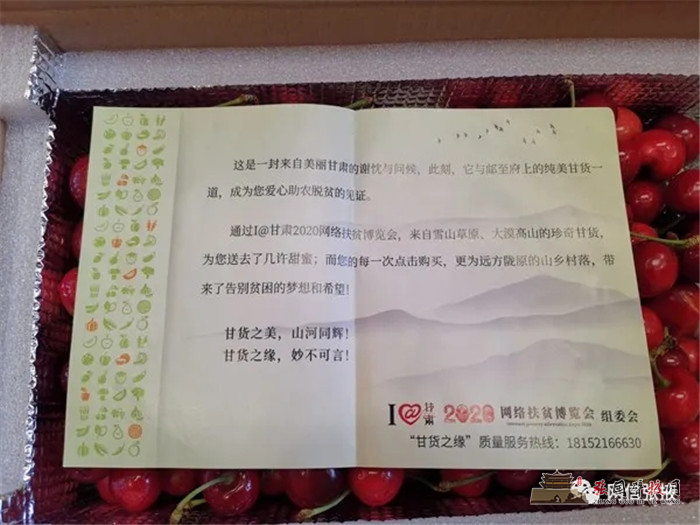 这是一封来自美丽甘肃的谢忱与问候，此刻，它与邮至府上的纯美甘货一
道，成为您爱心助农脱贫的见证。
通过I@甘肃2020网络扶贫博览会，来自雪山草原、大漠高山的珍奇甘货，
为您送去了几许甜蜜；而您的每一次点击购买，更为远方陇原的山乡村落，带
来了告别贫困的梦想和希望！
甘货之美，山河同辉！
甘货之缘，妙不可言！
I@甘肃 2020 网络扶贫博览会 组委会
“甘货之缘”质量服务热线：18152166630
网信张掖